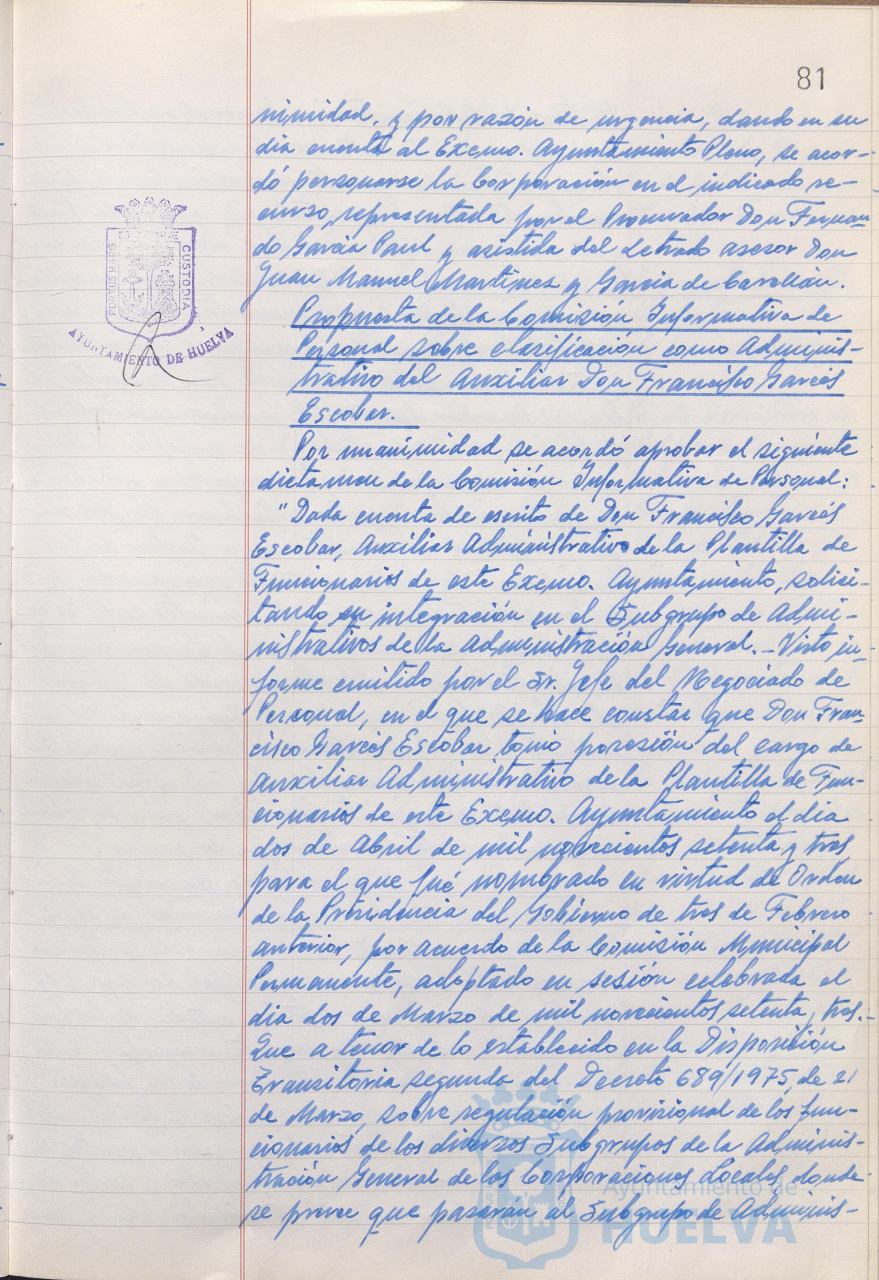 81
nimidad, y por razón de urgencia, dando en su
dia cuenta al Excmo. Ayuntamiento Pleno, se acor-
dó personarse la Corporación en el indicado re-
curso, representada por el Procurador Don Fernan-
do García Paul y asistida del Letrado asesor Don
Juan Manuel Martínez y García de
Propuesta de la Comisión Informativa de
Personal sobre clasificación como Adminis-
trativo del Auxiliar Don Francisco Garcés
Escobar.
Por unanimidad se acordó aprobar el siguiente
dictamen de la Comisión Informativa de Personal:
"Dada cuenta de escrito de Don Francisco Garcés
Escobar, Auxiliar Administrativo de la Plantilla de
Funcionarios de este Excmo. Ayuntamiento, solici-
tando su integración en el Subgrupo de Admi-
nistrativos de la Administración General.- Visto in-
forme emitido por el Sr. Jefe del Negociado de
Personal, en el que se hace constar que Don Fran-
cisco Garcés Escobar tomó posesión del cargo de
Auxiliar Administrativo de la Plantilla de Fun-
cionarios de este Excmo. Ayuntamiento el dia
dos de Abril de mil novecientos setenta y tres
para el que fué nombrado en virtud de Orden
de la Presidencia del Gobierno de tres de Febrero
anterior, por acuerdo de la Comisión Municipal
Permanente, adoptado en sesión celebrada el
dia dos de Marzo de mil novecientos setenta y tres.-
Que a tenor de lo establecido en la Disposición
Transitoria segunda del Decreto 689/1975, de 21
de Marzo, sobre regulación provisional de los fun-
cionarios de los diversos Subgrupos de la Adminis-
tración General de las Corporaciones Locales, donde
se preve que pasaran al Subgrupo de Adminis-
PORTUS MARIS
CUSTODIA
AYUNTAMIENTO DE HUELVA
Ayuntamiento de
HUELVA